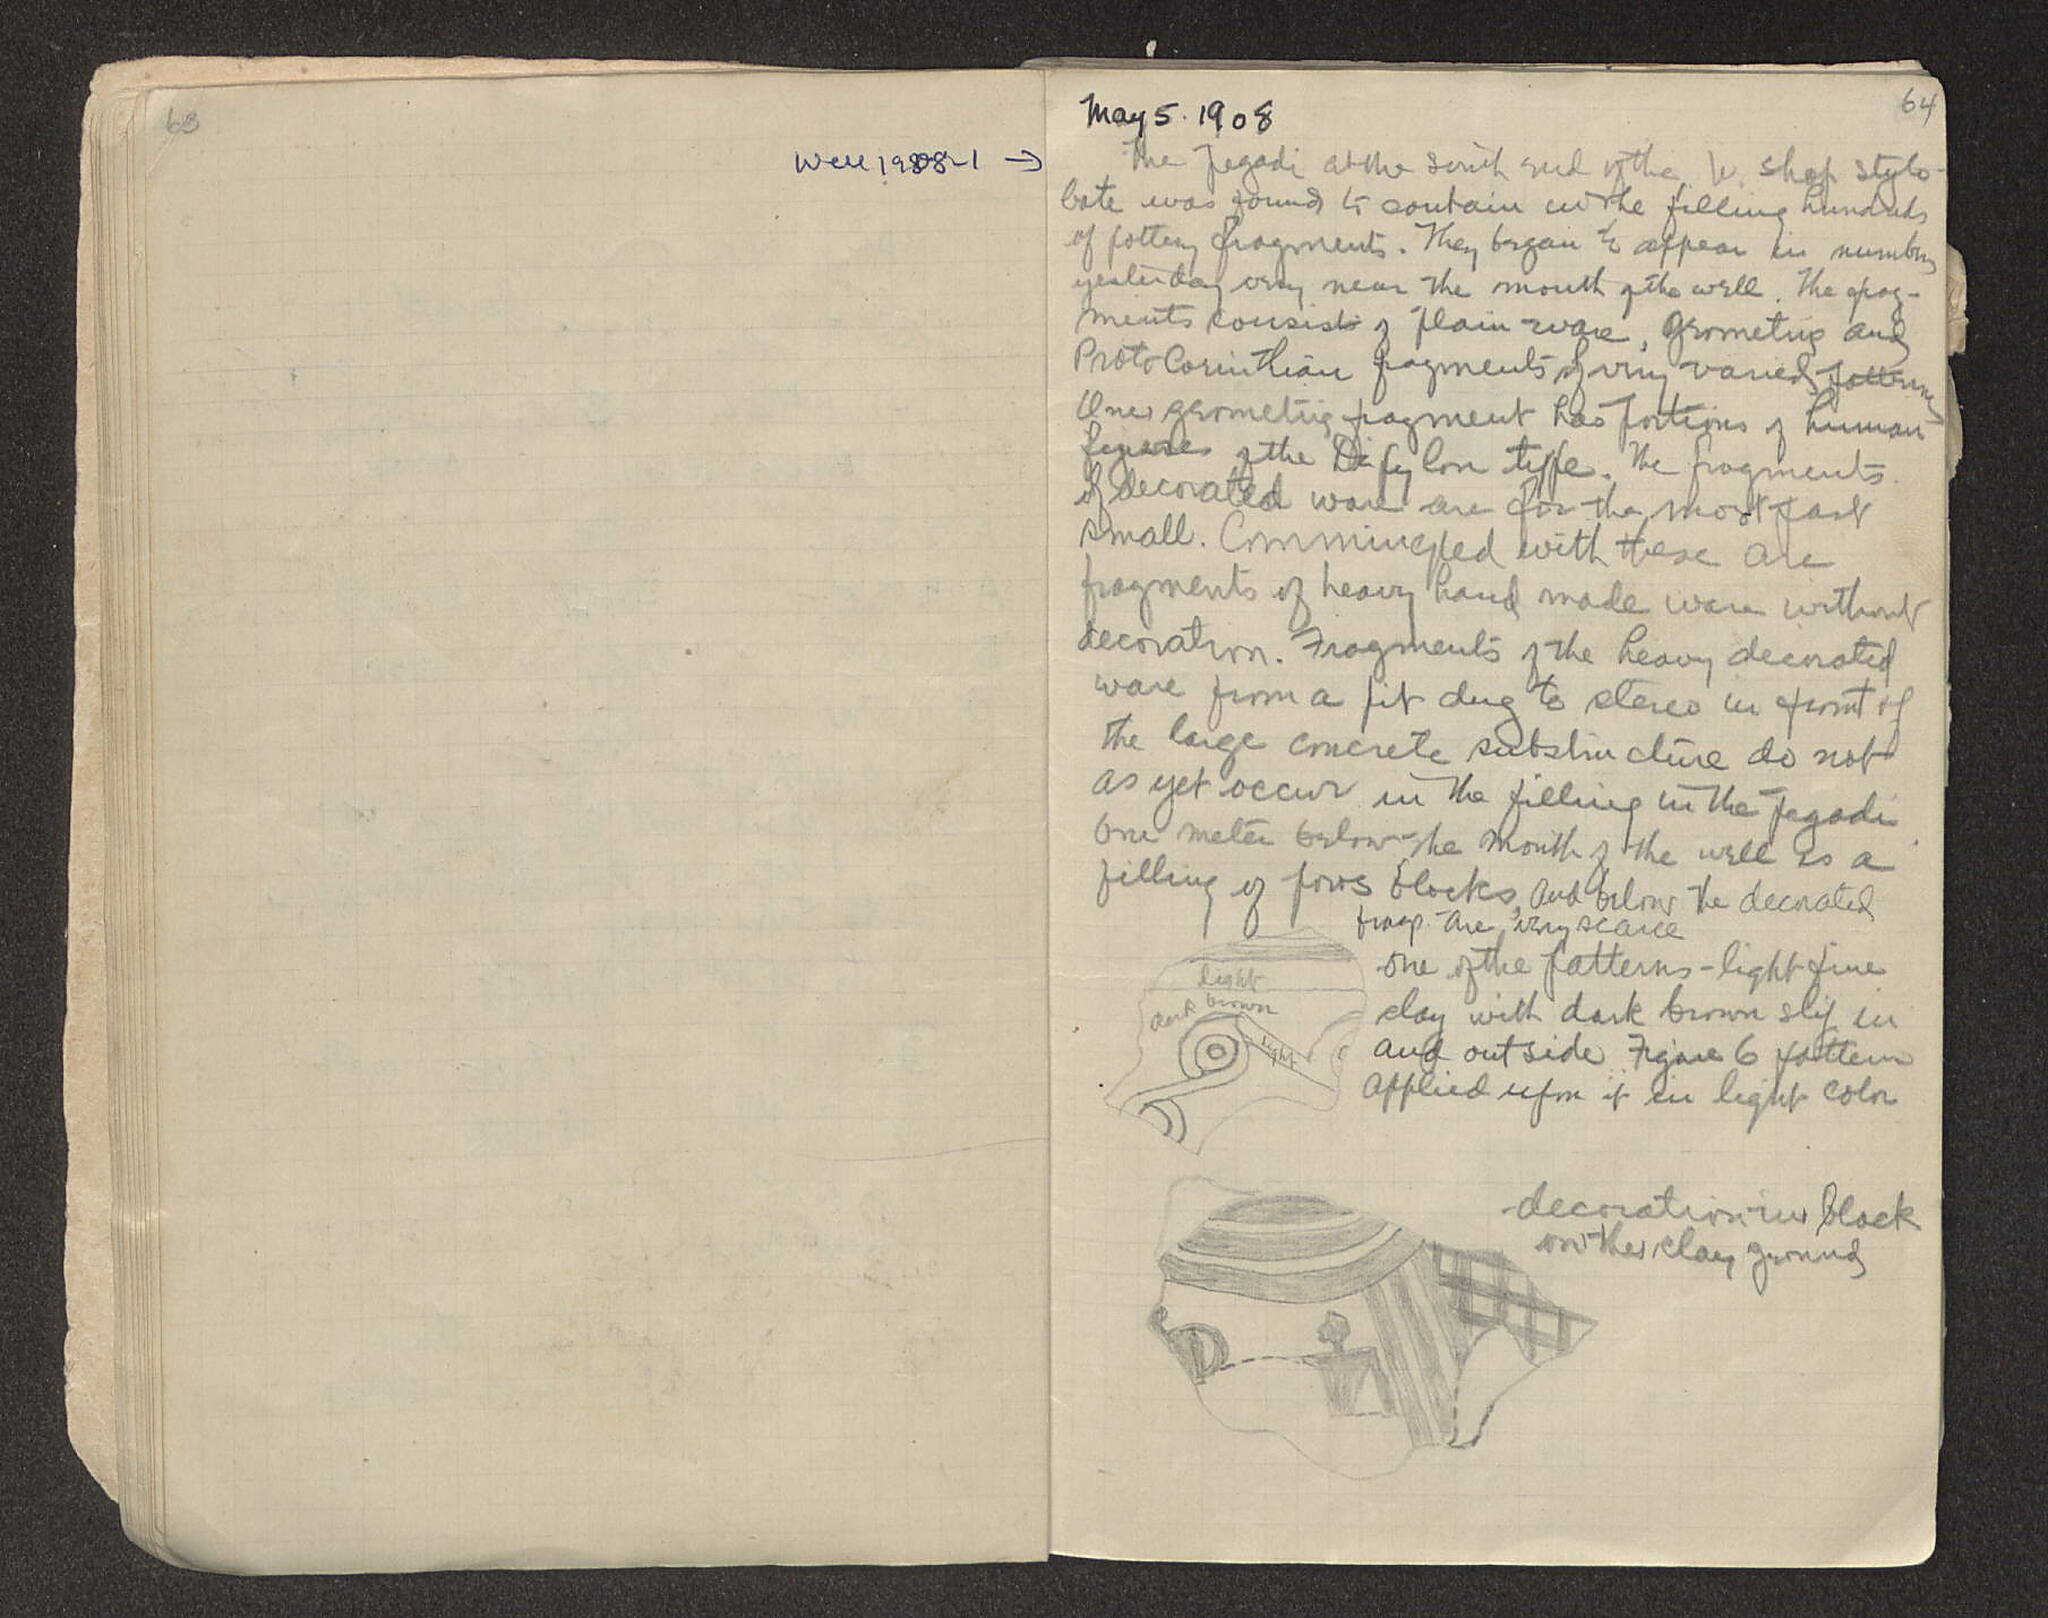 63
Well 1908-1 →
64
May 5. 1908
The pegadi at the south end of the W. shop stylo-
bate was found to contain in the filling hundreds
of pottery fragments. They began to appear in numbers
yesterday very near the mouth of the well. The frag-
ments consist of plain ware, Geometric and
ProtoCorinthian fragments of very varied patterns
One geometric fragment has portions of human
figures of the Dipylon type. The fragments
of decorated ware are for the most part
small. Commingled with these are
fragments of heavy hand made ware without
decoration. Fragments of the heavy decorated
ware from a pit dug to stereo in front of
the large concrete substructure do not
as yet occur in the filling in the pegadi
One meter below the mouth of the well is a
filling of poros blocks, and below the decorated
frags. are very scarce
one of the patterns - light fine
clay with dark brown slip in
and outside Figure 6 pattern
applied upon it in light color
light
dark brown
light
decoration in black
on the clay ground